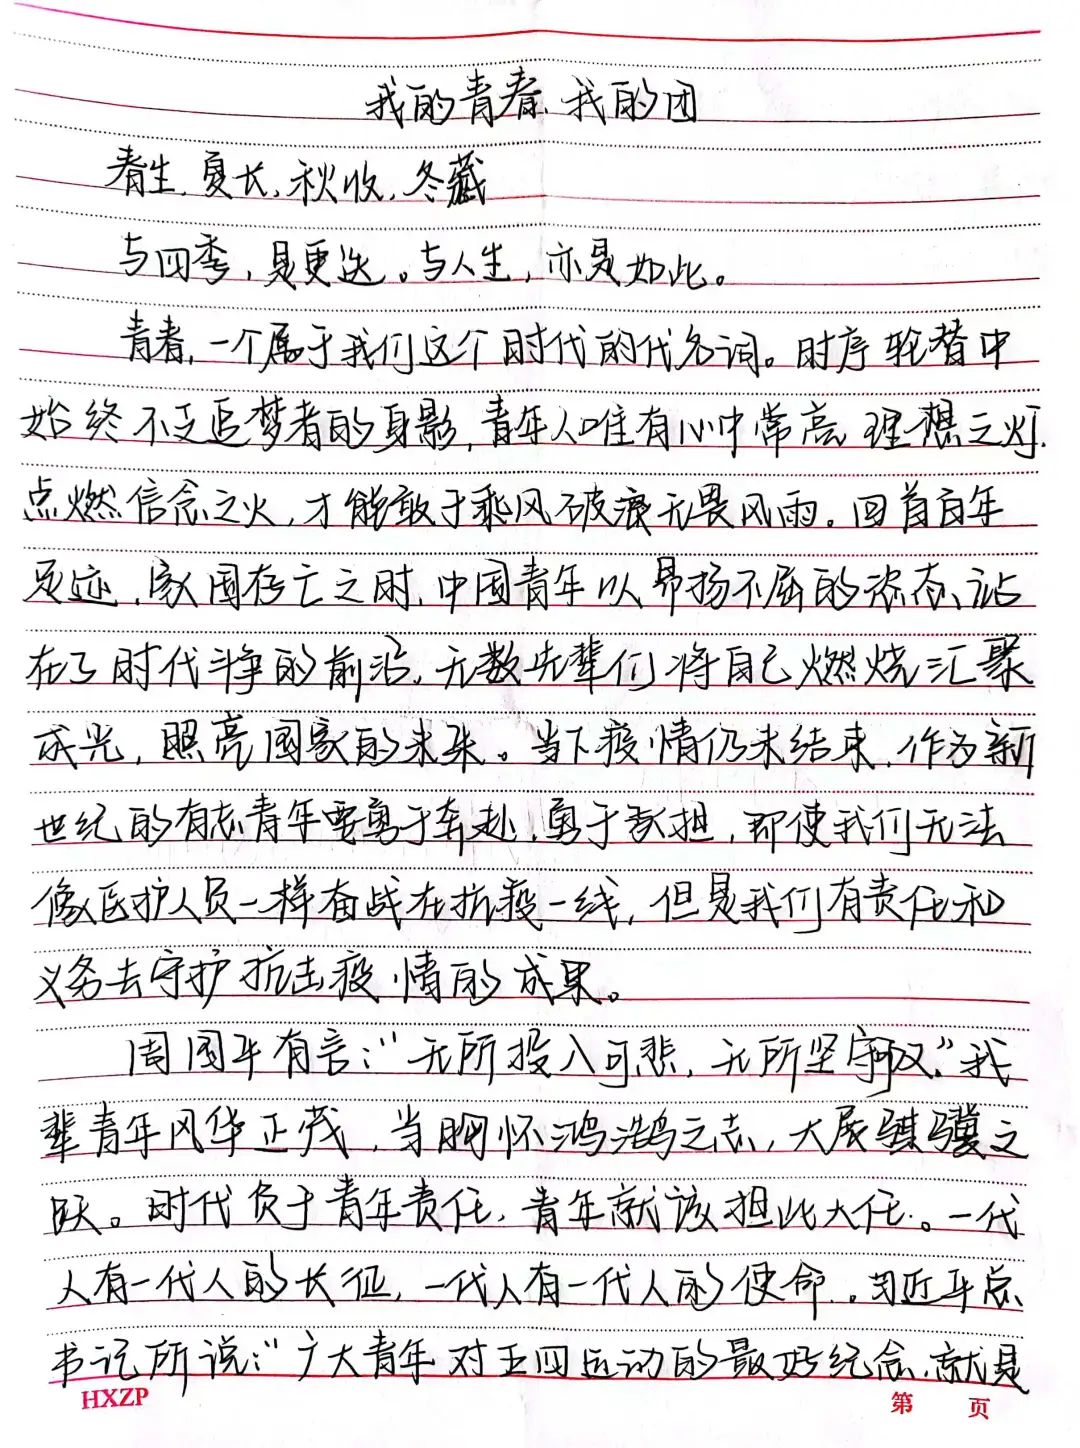 我的青春、我的团
春生,夏长,秋收,冬藏
与四季,是更迭。与人生,亦是如此。
青春,一个属于我们这个时代的代名词。时序轮替中
始终不变追梦者的身影,青年人唯有心中常亮理想之灯.
点燃信念之火,才能敢于乘风破浪无畏风雨。回首百年
足迹,家国存亡之时,中国青年以昂扬不屈的姿态、站
在了时代斗争的前沿,无数先辈们将自己燃烧汇聚
成光,照亮国家的未来。当下疫情仍未结束,作为新
世纪的有志青年要勇于奔赴,勇于承担,即使我们无法
像医护人员一样奋战在抗疫一线,但是我们有责任和
义务去守护抗击疫情的成果。
周国平有言:“无所投入可悲,无所坚守可叹。”我
辈青年风华正茂,当胸怀鸿鹄之志,大展骐骥之
跃。时代负于青年责任,青年就该担此大任。一代
人有一代人的长征,一代人有一代人的使命。习近平总
书记所说:“广大青年对五四运动的最好纪念,就是
HXZP
第 页